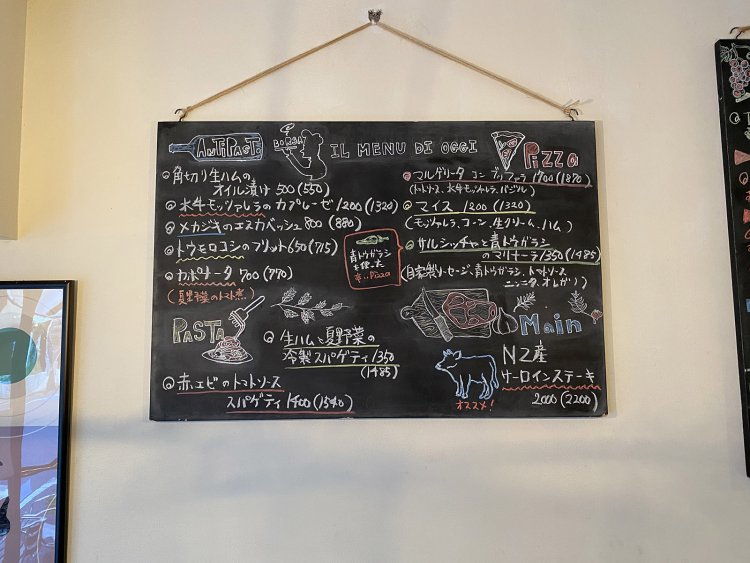 ANTIPASTO
BORSA
IL MENU DI OGGI
PIZZA
角切り生ハムの
オイル漬け 500(550)
水牛モッツァレラのカプレーゼ 1200(1320)
メカジキのエスカベッシュ 800 (880)
トウモロコシのフリット 650(715)
カポナータ 700 (770)
(夏野菜のトマト煮)
青トウガラシ
を使った
辛いPizza
マルゲリータ コン ブッファラ 1700(1870)
(トマトソース、水牛モッツァレラ、バジル)
マイス 1200 (1320)
(モッツァレラ、コーン、生クリーム、ハム)
サルシッチャと青トウガラシ
のマリナーラ 1350(1485)
(自家製ソーセージ、青トウガラシ、トマトソース
ニンニク、オレガノ)
PASTA
生ハムと夏野菜の
冷製スパゲティ 1350
(1485)
赤エビのトマトソース
スパゲティ 1400(1540)
Main
NZ産
サーロインステーキ
2000(2200)
オススメ!